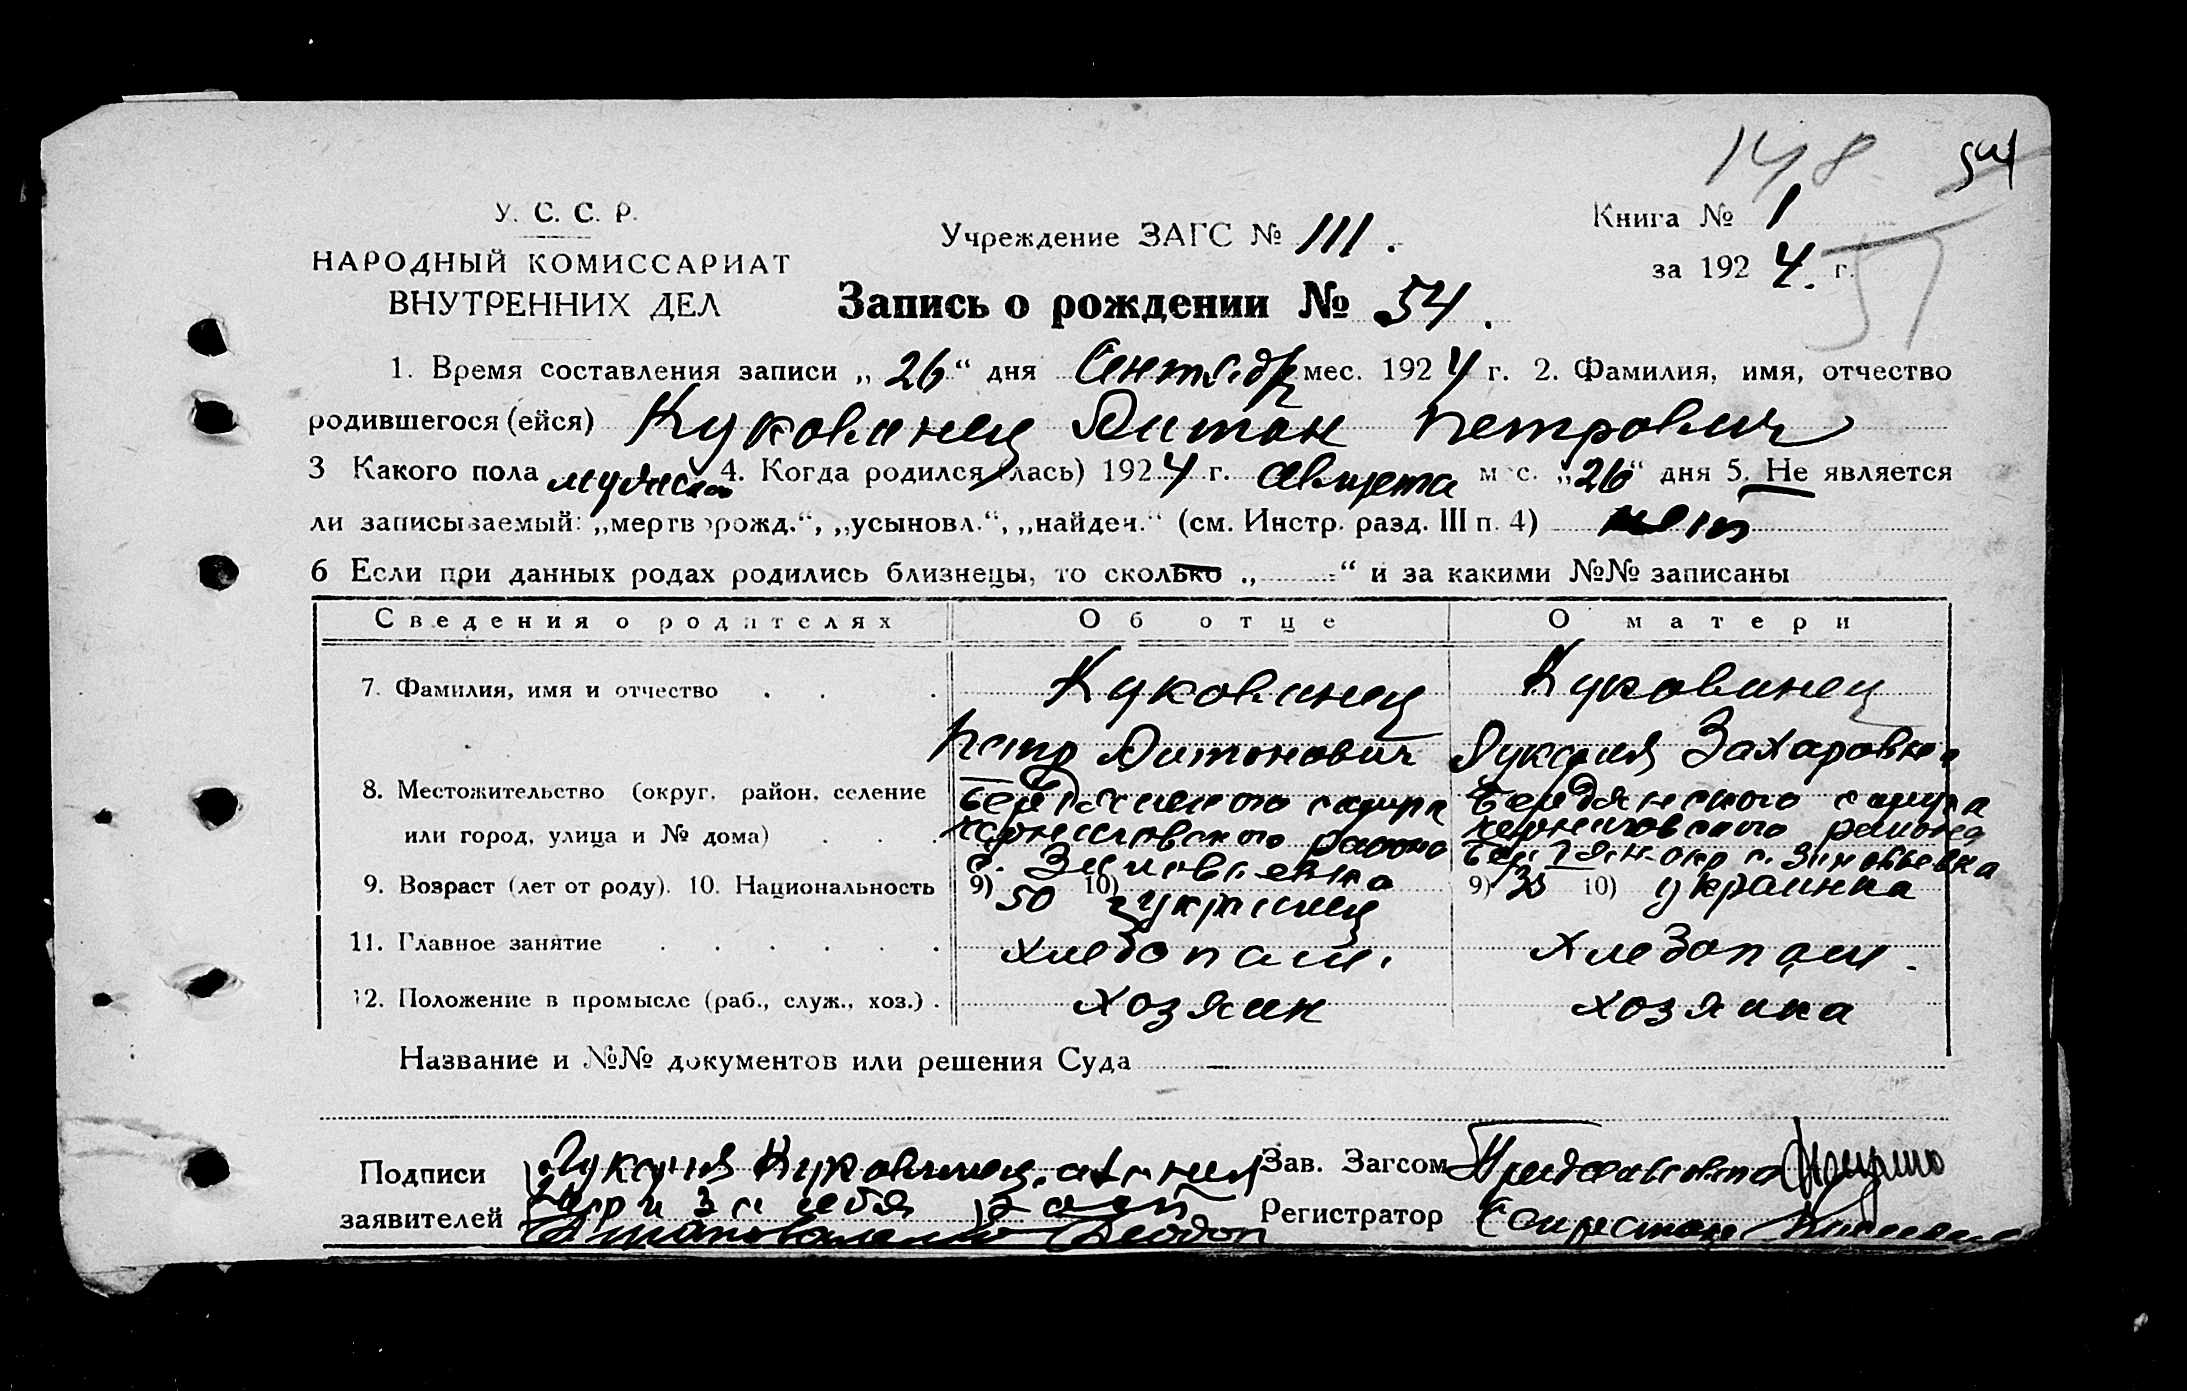 148 54
У. С. С. Р.
НАРОДНЫЙ КОМИССАРИАТ
ВНУТРЕННИХ ДЕЛ
Учреждение ЗАГС № 111.
Книга № 1
за 1924. г.
57
Запись о рождении № 54.
1. Время составления записи „26“ дня Сентябр мес. 1924 г. 2. Фамилия, имя, отчество
родившегося (ейся) Куковинец Антон Петрович
3 Какого пола мужской 4. Когда родился (лась) 1924 г. Августа мес. „26“ дня 5. Не является
ли записываемый: „мертворожд.“, „усыновл.“, „найден.“ (см. Инстр. разд. III п. 4) нет
6 Если при данных родах родились близнецы, то сколько „ “ и за какими №№ записаны
Сведения о родителях Об отце О матери
7. Фамилия, имя и отчество Куковинец Куковинец
Петр Антонович Лукерия Захаровна
8. Местожительство (округ, район, селение Бердянского округа Бердянского округа
или город, улица и № дома) Черниговского района Черниговского района
с. Зиновьевка с. Зиновьевка
9. Возраст (лет от роду). 10. Национальность 9) 50 10) украинец 9) 10) украинка
11. Главное занятие хлебопаш. хлебопаш.
12. Положение в промысле (раб., служ., хоз.) хозяин хозяйка
Название и №№ документов или решения Суда
Подписи Куковинец Зав. Загсом
заявителей и за себя Регистратор